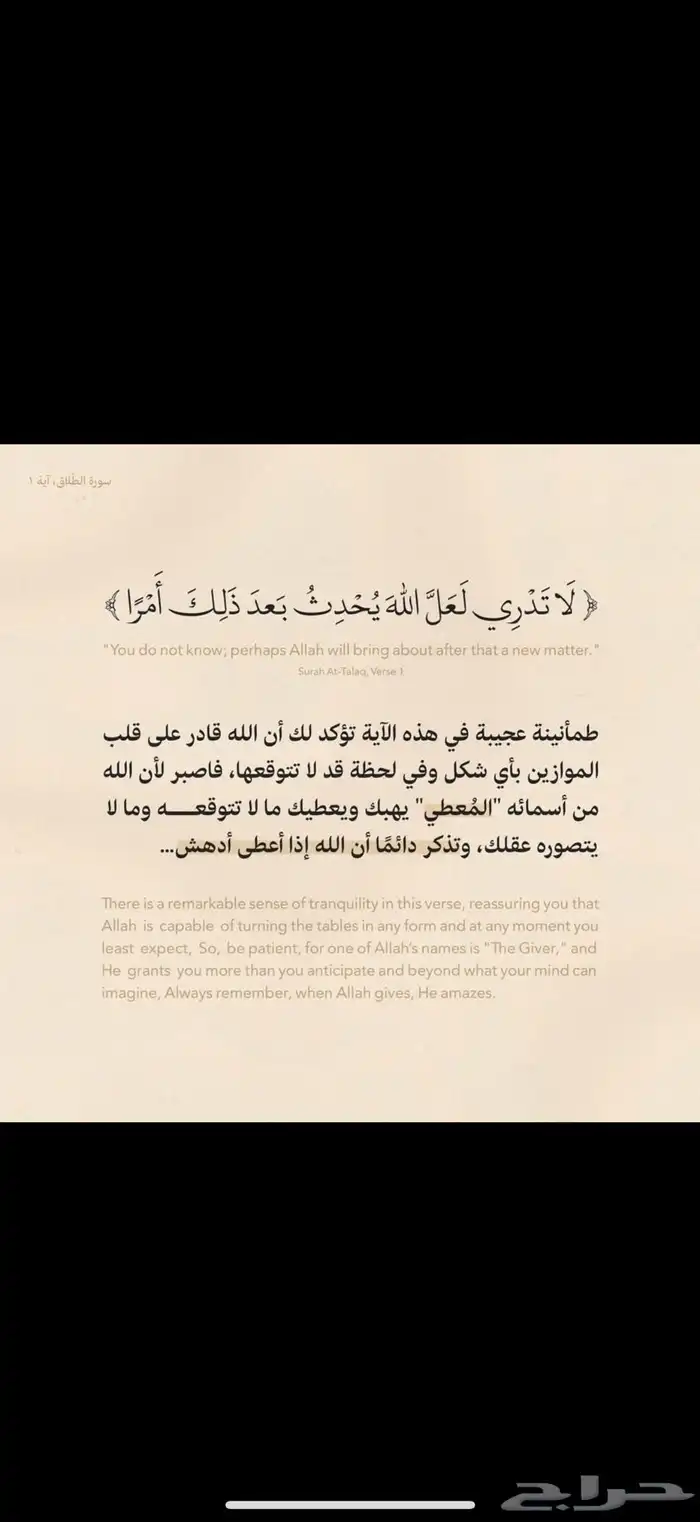 سورة الطّلاق، آية ١
﴿ لَا تَدْرِي لَعَلَّ اللهَ يُحْدِثُ بَعدَ ذَلِكَ أَمْرًا ﴾
"You do not know; perhaps Allah will bring about after that a new matter."
Surah At-Talaq, Verse 1
طمأنينة عجيبة في هذه الآية تؤكد لك أن الله قادر على قلب
الموازين بأي شكل وفي لحظة قد لا تتوقعها، فاصبر لأن الله
من أسمائه "المُعطي" يهبك ويعطيك ما لا تتوقعـــه وما لا
يتصوره عقلك، وتذكر دائمًا أن الله إذا أعطى أدهش...
There is a remarkable sense of tranquility in this verse, reassuring you that
Allah is capable of turning the tables in any form and at any moment you
least expect, So, be patient, for one of Allah's names is "The Giver," and
He grants you more than you anticipate and beyond what your mind can
imagine, Always remember, when Allah gives, He amazes.
حراج